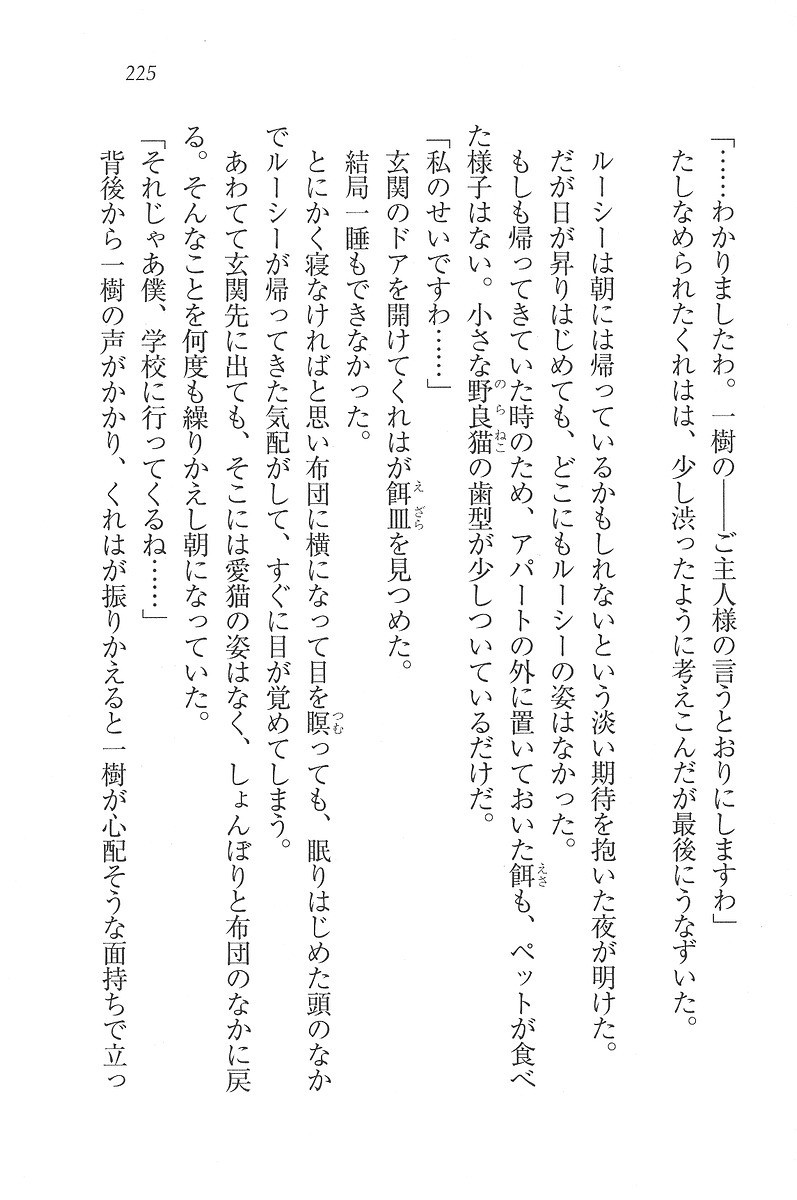 225
「……わかりましたわ。一樹の――ご主人様の言うとおりにしますわ」
たしなめられたくれはは、少し渋ったように考えこんだが最後にうなずいた。
ルーシーは朝には帰っているかもしれないという淡い期待を抱いた夜が明けた。
だが日が昇りはじめても、どこにもルーシーの姿はなかった。
もしも帰ってきていた時のため、アパートの外に置いておいた餌も、ペットが食べ
た様子はない。小さな野良猫の歯型が少しついているだけだ。
「私のせいですわ……」
玄関のドアを開けてくれはが餌皿を見つめた。
結局一睡もできなかった。
とにかく寝なければと思い布団に横になって目を瞑っても、眠りはじめた頭のなか
でルーシーが帰ってきた気配がして、すぐに目が覚めてしまう。
あわてて玄関先に出ても、そこには愛猫の姿はなく、しょんぼりと布団のなかに戻
る。そんなことを何度も繰りかえし朝になっていた。
「それじゃあ僕、学校に行ってくるね……」
背後から一樹の声がかかり、くれはが振りかえると一樹が心配そうな面持ちで立っ